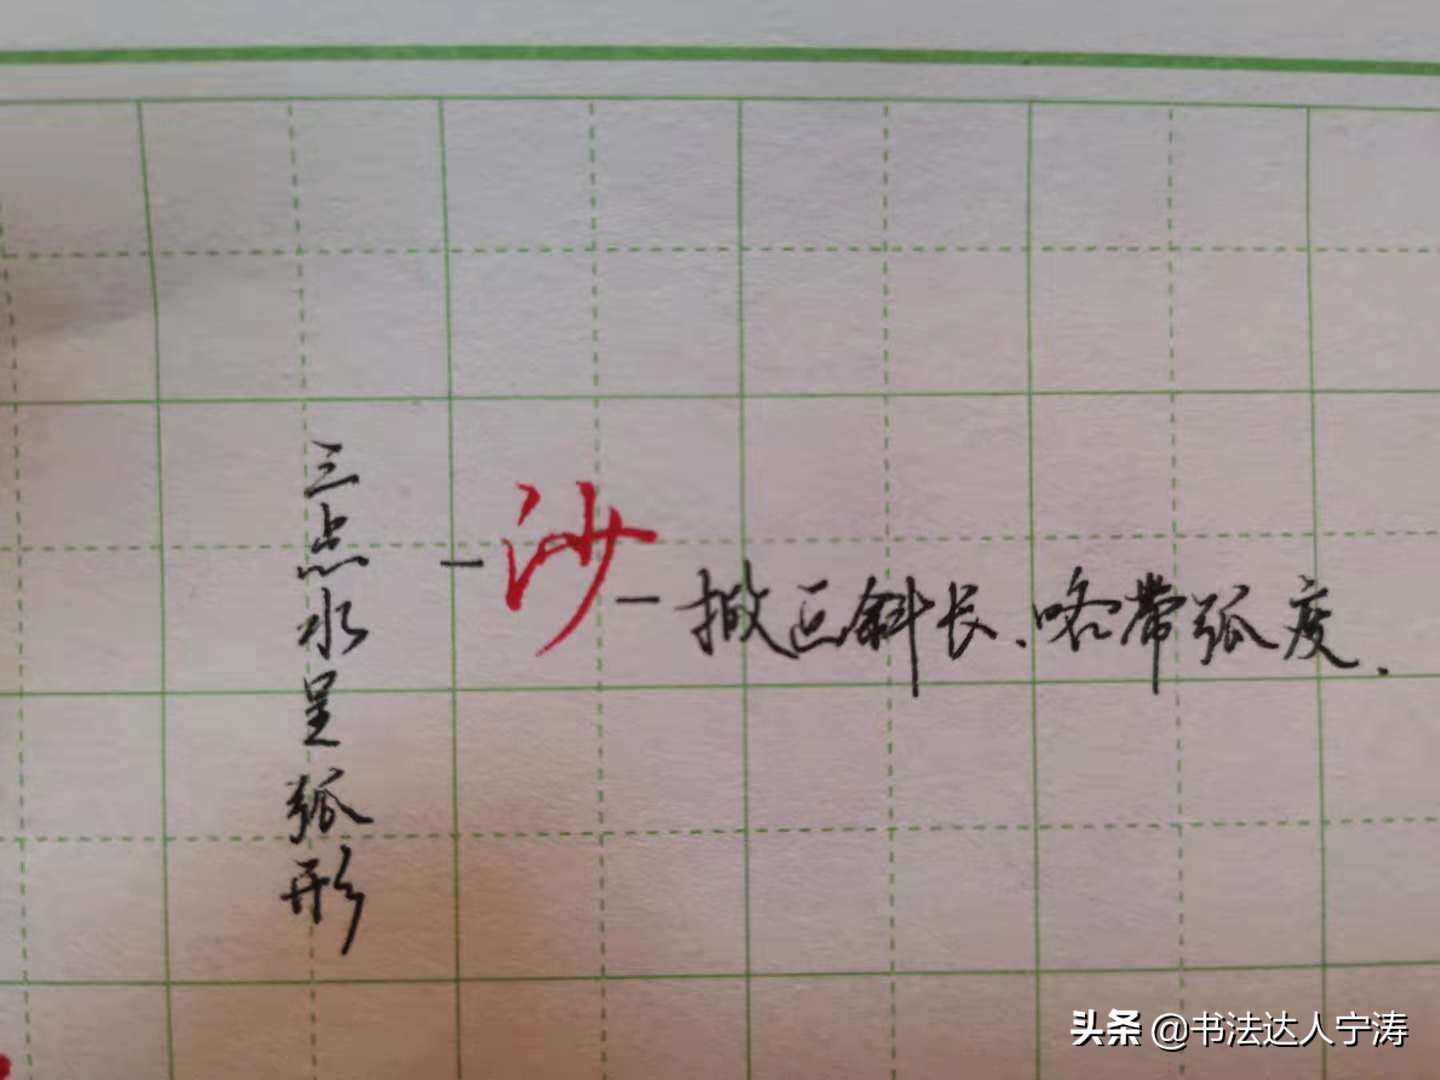 三点水呈弧形
沙
撇画斜长、略带弧度.
头条 @书法达人宁涛